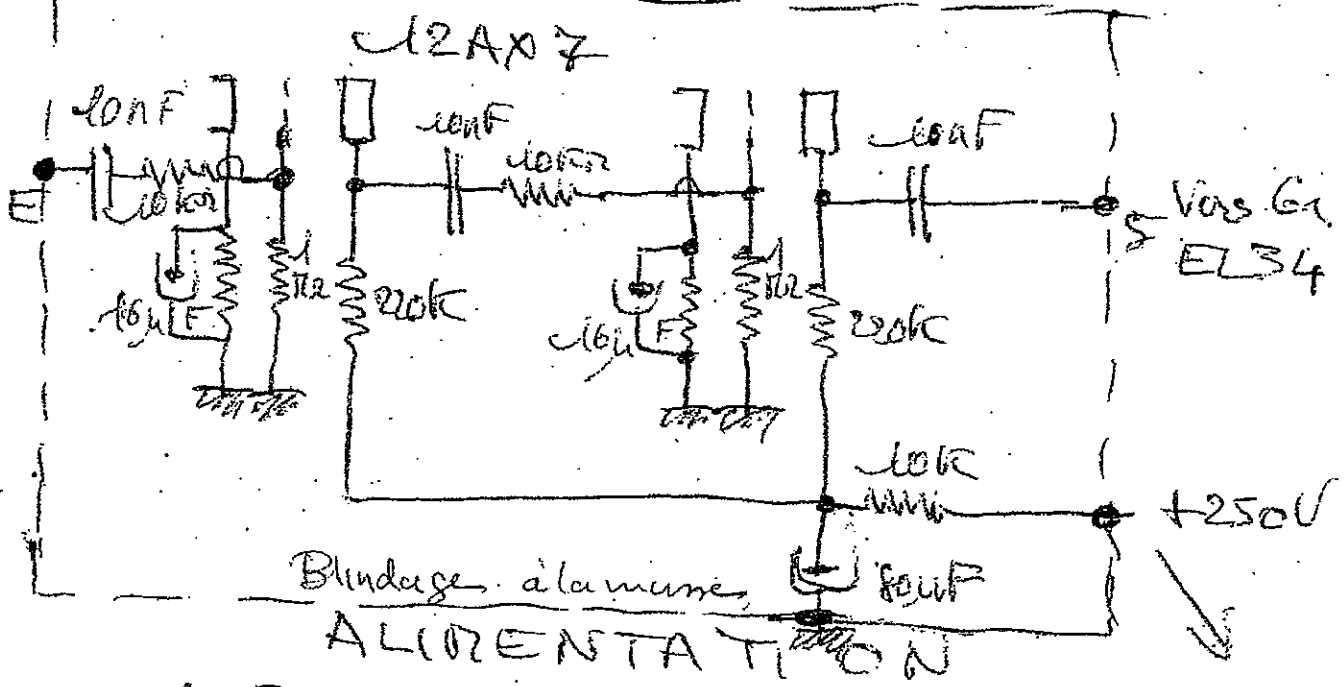 12AX7
10nF
10nF
10nF
10KΩ
10KΩ
E
S Vers G1
EL34
1
MΩ
220K
1
MΩ
220K
16µF
16µF
10K
+250V
Blindages à la masse
80µF
ALIMENTATION